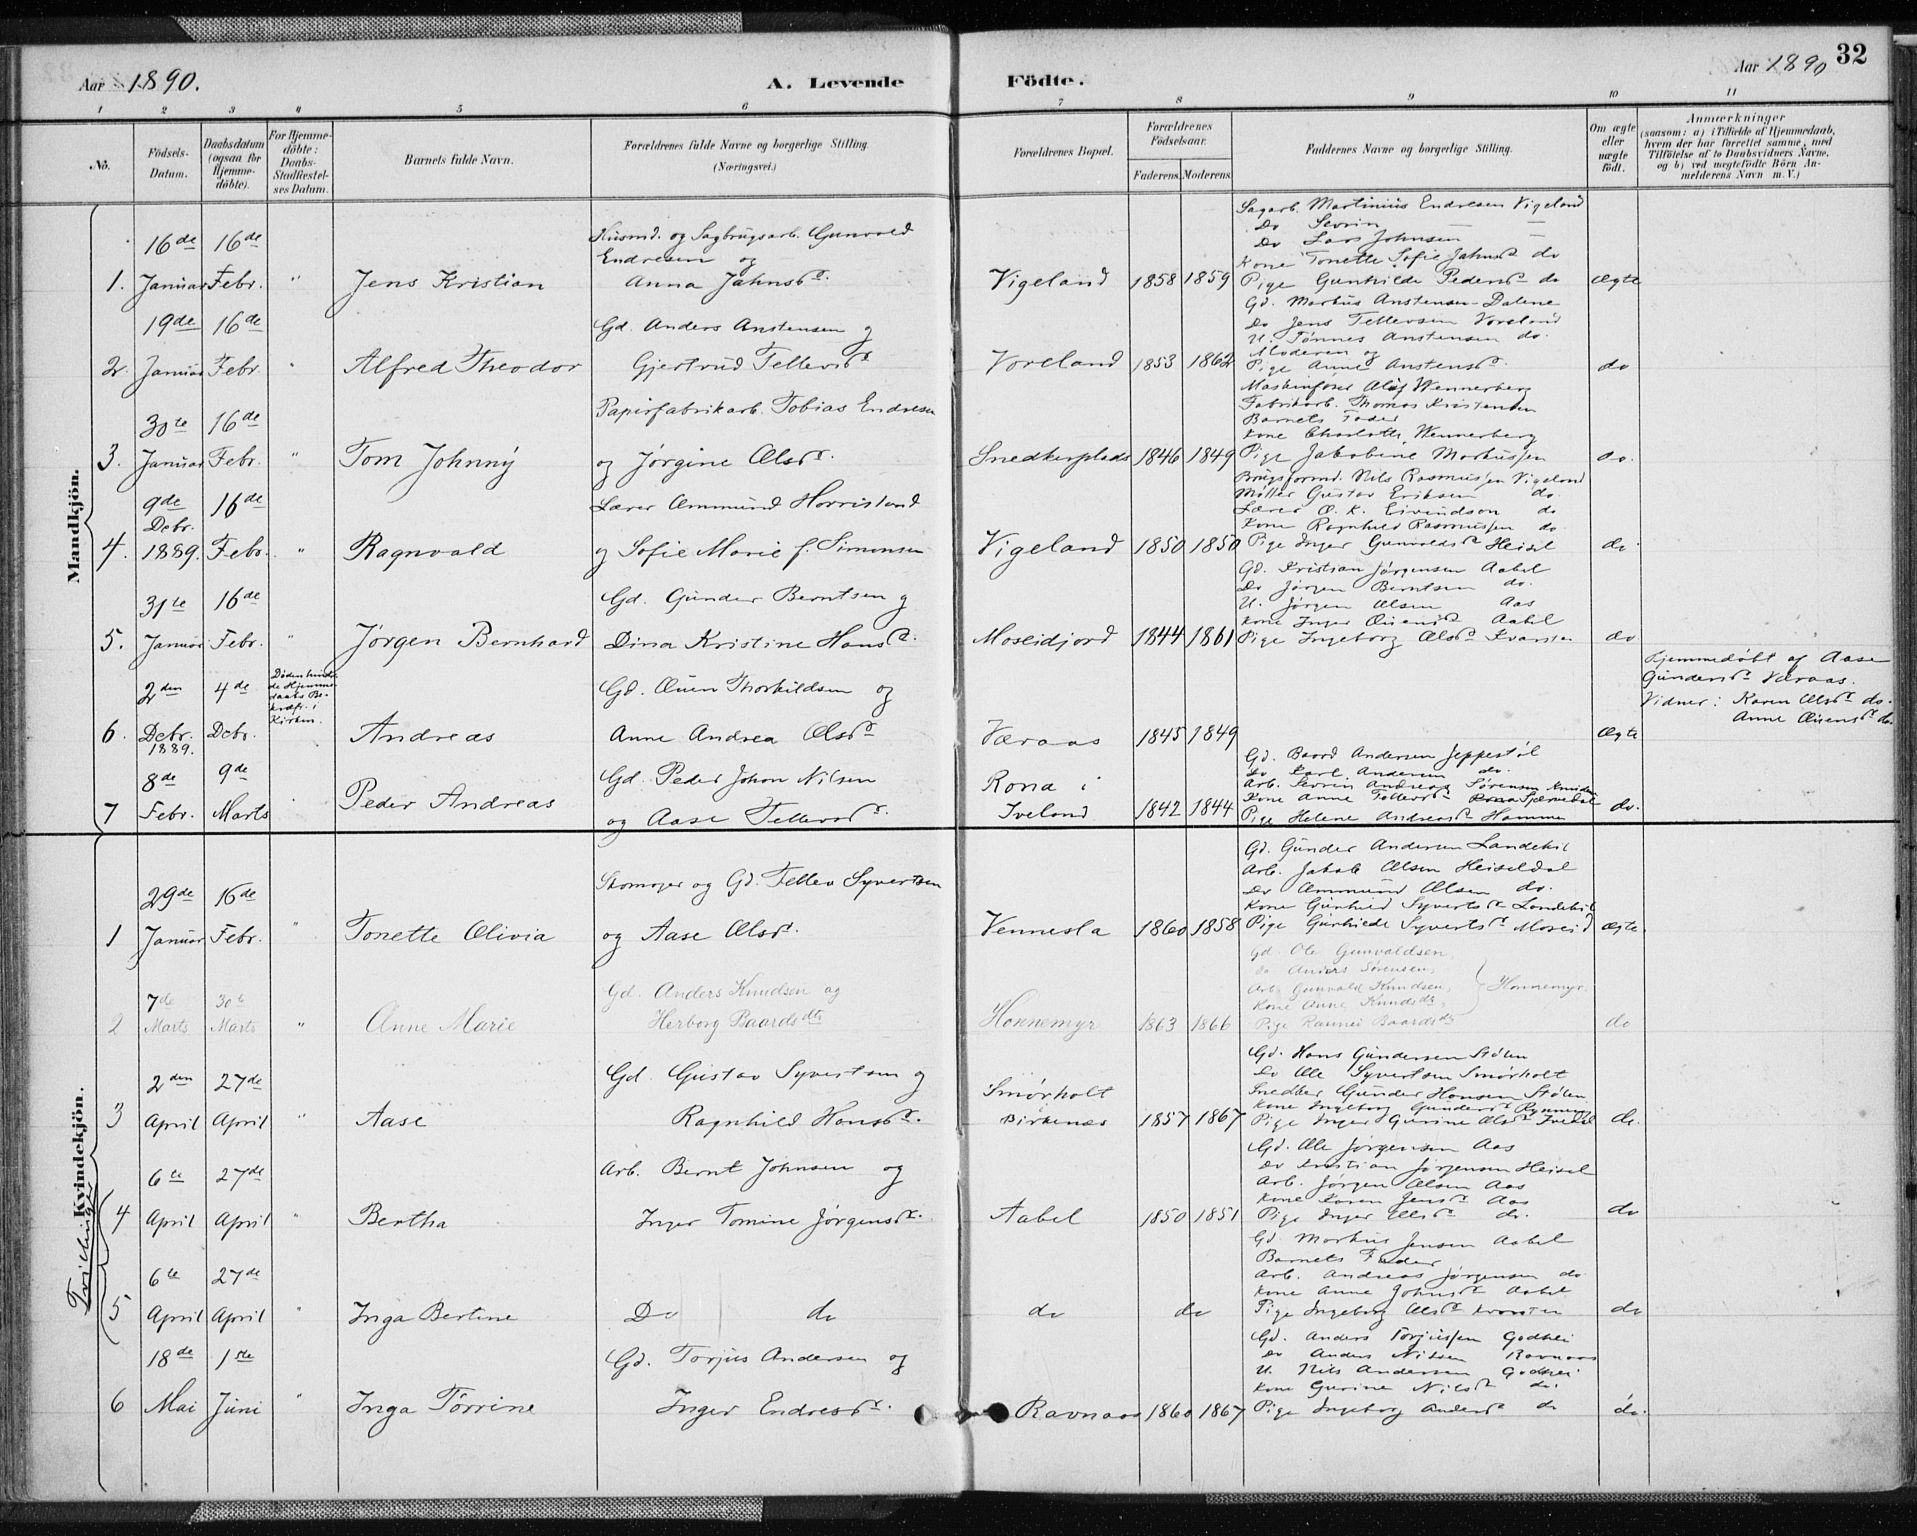 Aar 1890. A. Levende Födte. Aar 1890 32
1 2 3 4 5 6 7 8 9 10 11
No.
Födsels-Datum.
Daabsdatum (ogsaa for Hjemmedöbte).
For Hjemmedöbte: Daabs-Stadfæstelses Datum.
Barnets fulde Navn.
Forældrenes fulde Navne og borgerlige Stilling.
(Næringsvei.)
Forældrenes Bopæl.
Forældrenes Födselsaar.
Faderens. Moderens.
Faddernes Navne og borgerlige Stilling.
Om ægte eller uægte födt.
Anmærkninger
(saasom: a) i Tilfælde af Hjemmedaab, hvem der har forrettet samme, med Tilföielse af to Daabsvidners Navne, og b) ved uægtefödte Börn Anmelderens Navn m. V.)
Mandkjön.
1. 16de Januar 16de Febr. " Jens Kristian
Husmd. og Sagbrugsarb. Gunvald
Endresen og
Anna Jahnsdr.
Vigeland 1858 1859
Sagarb. Martinius Endresen Vigeland
Do Sevrin —
Do Lars Johnsen —
Kone Tonette Sofie Jahnsdr do
Pige Gunhilde Pedersdr do
Ægte
2. 19de Januar 16de Febr. " Alfred Theodor
Gd. Anders Anstensen og
Gjertrud Tellevsdr
Voreland 1853 1862
Gd. Markus Anstensen Dalene
Do Jens Tellevsen Voreland
U. Tønnes Anstensen do.
Moderen og
Pige Anne Anstensdr.
do
3. 30te Januar 16de Febr. " Tom Johnny
Papirfabrikarb. Tobias Endresen
og Jørgine Olsdr.
Snedkerplads 1846 1849
Maskinfører Oluf Wennerberg
Fabrikarb. Thomas Kristensen
Barnets Fader
Kone Charlotte Wennerberg
Pige Jakobine Markussen
do.
4. 9de Debr. 1889. 16de Febr. " Ragnvald
Lærer Ommund Horrisland
og Sofie Marie f. Simonsen
Vigeland 1850 1850
Brugsformd. Nils Rasmussen Vigeland
Møller Gustav Eriksen do.
Lærer O. K. Eivindson do
Kone Ragnhild Rasmussen do.
Pige Inger Gunvaldsdr Heisel
do
5. 31te Januar 16de Febr. " Jørgen Bernhard
Gd. Gunder Berntsen og
Dina Kristine Hansdr.
Moseidjord 1844 1861
Gd. Kristian Jørgensen Aabel
Do Jørgen Berntsen do.
U. Jørgen Olsen Aas
Kone Inger Ouensdr Aabel
Pige Ingeborg Olsdr Kvarsten
do
6. 2den Debr. 1889. 4de Debr.
Døden hindrede Hjemmedaabs Bekræft. i Kirken.
Andreas
Gd. Ouen Thorkildsen og
Anne Andrea Olsdr
Væraas 1845 1849
Ægte
Hjemmedøbt af Aase
Gundersdr Væraas.
Vidner: Karen Olsdr do.
Anne Ouensdr do.
7 8de Febr. 9de Marts Peder Andreas
Gd. Peder Johan Nilsen
og Aase Tellevsdr.
Rona i
Iveland 1842 1844
Gd. Baard Andersen Jeppestøl
Do Karl Andersen do.
Arb. Sevrin Andreas Sørensen
Kone Anne Tellevsdr
Pige Helene Andreasdr Hamme
do.
Kvindekjön.
1 29de Januar 16de Febr. " Tonette Olivia
Skomager og Gd. Tellev Syvertsen
og Aase Olsdr.
Vennesla 1860 1858
Gd. Gunder Andersen Landekil
Arb. Jakob Olsen Heiseldal
Do Ommund Olsen do.
Kone Gunhild Syvertsdr Landekil
Pige Gunhilde Syvertsdr Moseid
Ægte.
2 7de Marts 30te Marts " Anne Marie
Gd. Anders Knudsen og
Herborg Baardsdtr
Honnemyr 1863 1866
Gd. Ole Gunvaldsen,
do. Anders Sørensen,
Arb. Gunvald Knudsen,
Kone Anne Knudsdtr,
Pige Rannei Baardsdtr
Honnemyr.
do
3 2den April 27de April " Aase
Gd. Gustav Syvertsen og
Ragnhild Hansdr.
Smørholt
Birkenes 1857 1867
Gd. Hans Gundersen Stølen
Do Ole Syvertsen Smørholt
Snedker Gunder Hansen Stølen
Kone Ingeborg Gundersdr
Pige Inger Gurine Olsdr
do.
Tvillinger
4 6te April 27de April " Bertha
Arb. Bernt Johnsen og
Inger Tomine Jørgensdr.
Aabel 1850 1851
Gd. Ole Jørgensen Aas
Do Kristian Jørgensen Heisel
Arb. Jørgen Olsen Aas
Kone Karen Jensdr Aas
Pige Inger Olsdr do.
do
5 6te April 27de April " Inga Bertine
Do do
do do
Gd. Markus Jensen Aabel
Barnets Fader
Arb. Andreas Jørgensen do
Kone Anne Johnsdr Aabel
Pige Ingeborg Olsdr Kvarsten
do
6 18de Mai 1ste Juni " Inga Torrine
Gd. Torjus Andersen og
Inger Endresdr.
Ravnaas 1860 1867
Gd. Anders Torjussen Godhei
Do Anders Nilsen Ravnaas
U. Nils Andersen Godhei
Kone Gurine Nilsdr do.
Pige Ingeborg Andersdr do
do.